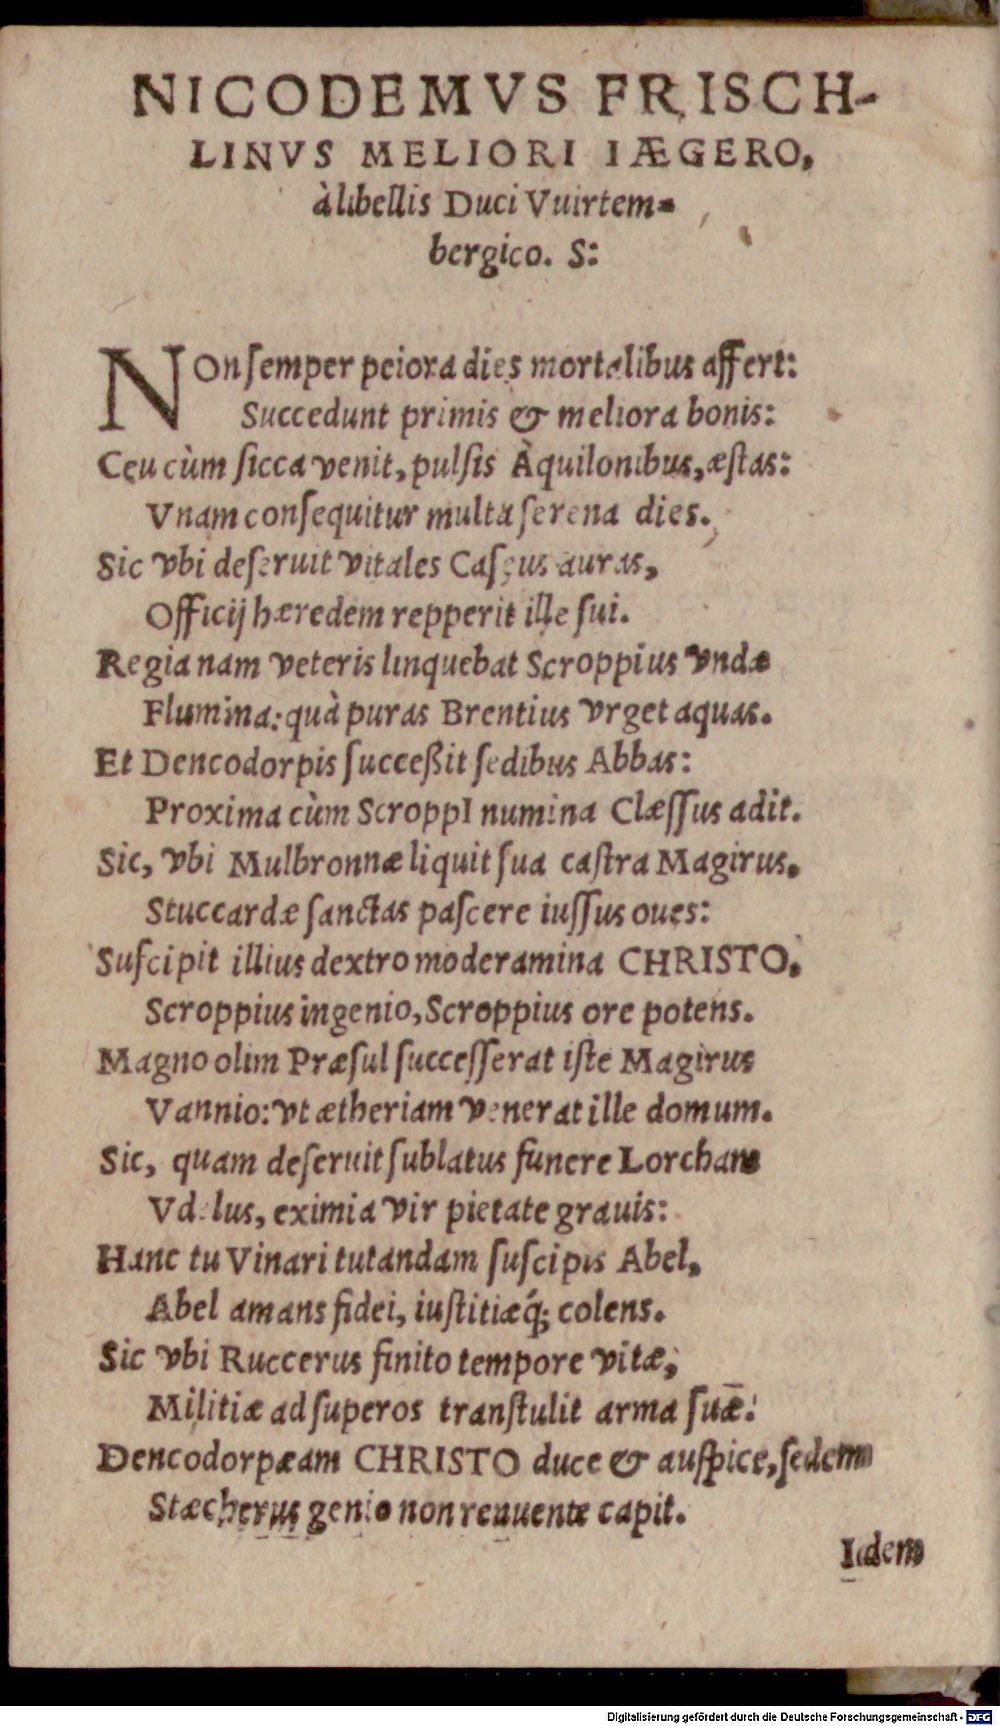 NICODEMVS FRISCH-
LINVS MELIORI IÆGERO,
à libellis Duci Vuirtem-
bergico. S:
NOn ſemper peiora dies mortalibus affert:
Succedunt primis & meliora bonis:
Ceu cùm ſicca venit, pulſis Àquilonibus, æſtas:
Vnam conſequitur multa ſerena dies.
Sic vbi deſeruit vitales Caſeus auras,
Officij hæredem repperit ille ſui.
Regia nam veteris linquebat Scroppius vndæ
Flumina: quà puras Brentius vrget aquas.
Et Dencodorpis ſucceßit ſedibus Abbas:
Proxima cùm ScroppI numina Clæſſus adit.
Sic, vbi Mulbronnæ liquit ſua caſtra Magirus,
Stuccardæ ſanctas paſcere iuſſus oues:
Suſcipit illius dextro moderamina CHRISTO,
Scroppius ingenio, Scroppius ore potens.
Magno olim Præſul ſucceſſerat iſte Magirus
Vannio: vt ætheriam venerat ille domum.
Sic, quam deſeruit ſublatus funere Lorcham
Vdelus, eximia vir pietate grauis:
Hanc tu Vinari tutandam ſuſcipis Abel,
Abel amans fidei, iuſtitiæq́; colens.
Sic vbi Ruccerus finito tempore vitæ,
Militiæ ad ſuperos tranſtulit arma ſuǣ:
Dencodorpæam CHRISTO duce & auſpice, ſedem
Stæcherus genio non renuente capit.
Iidem
Digitalisierung gefördert durch die Deutsche Forschungsgemeinschaft - DFG